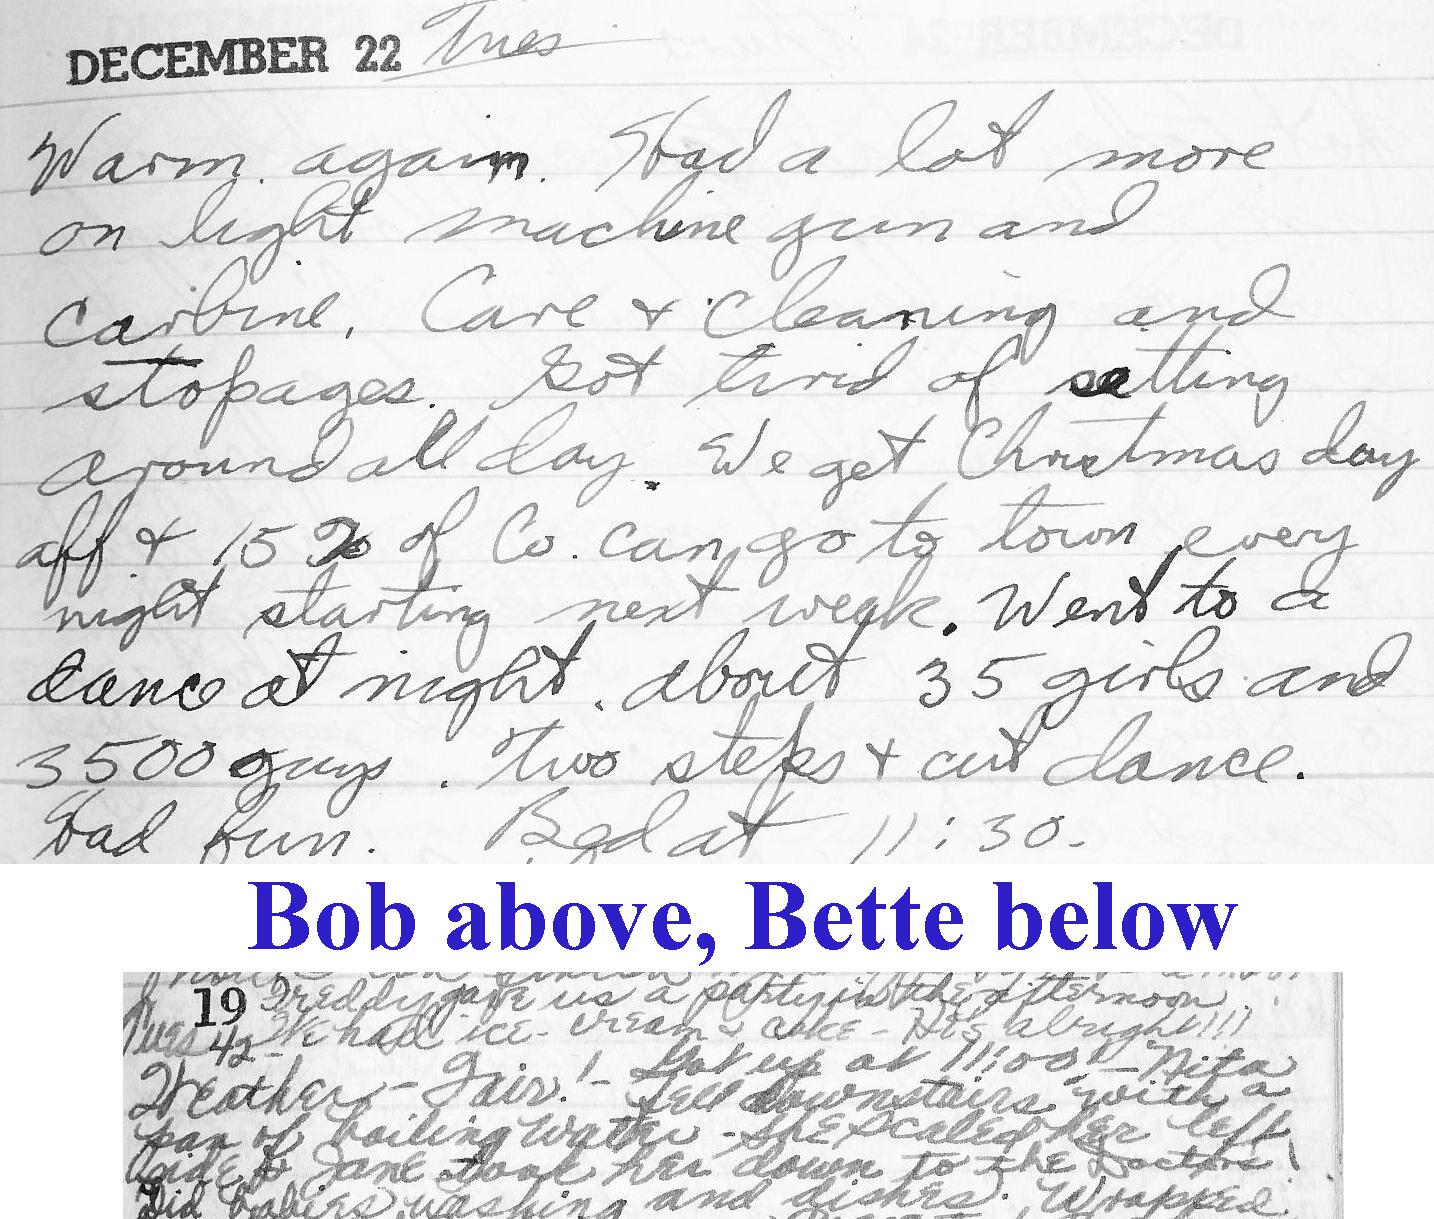 DECEMBER 22 Tues
Warm again. Had a lot more
on light machine gun and
Carbine. Care + cleaning and
stopages. Got tired of setting
around all day. We get Christmas day
off + 15% of Co. can go to town every
night starting next week. Went to a
dance at night. about 35 girls and
3500 guys. Two steps + cut dance.
Had fun. Bed at 11:30.
Bob above, Bette below
19 Freddy gave us a party in the afternoon
Tues 42 We had ice-cream & cake - He's alright!!!
Weather - Fair! - Got up at 11:00! - Nita
fell downstairs with a
pan of boiling water - She scaled her left
side & Jane took her down to the Doctors
Did babies washing and dishes. Wrapped